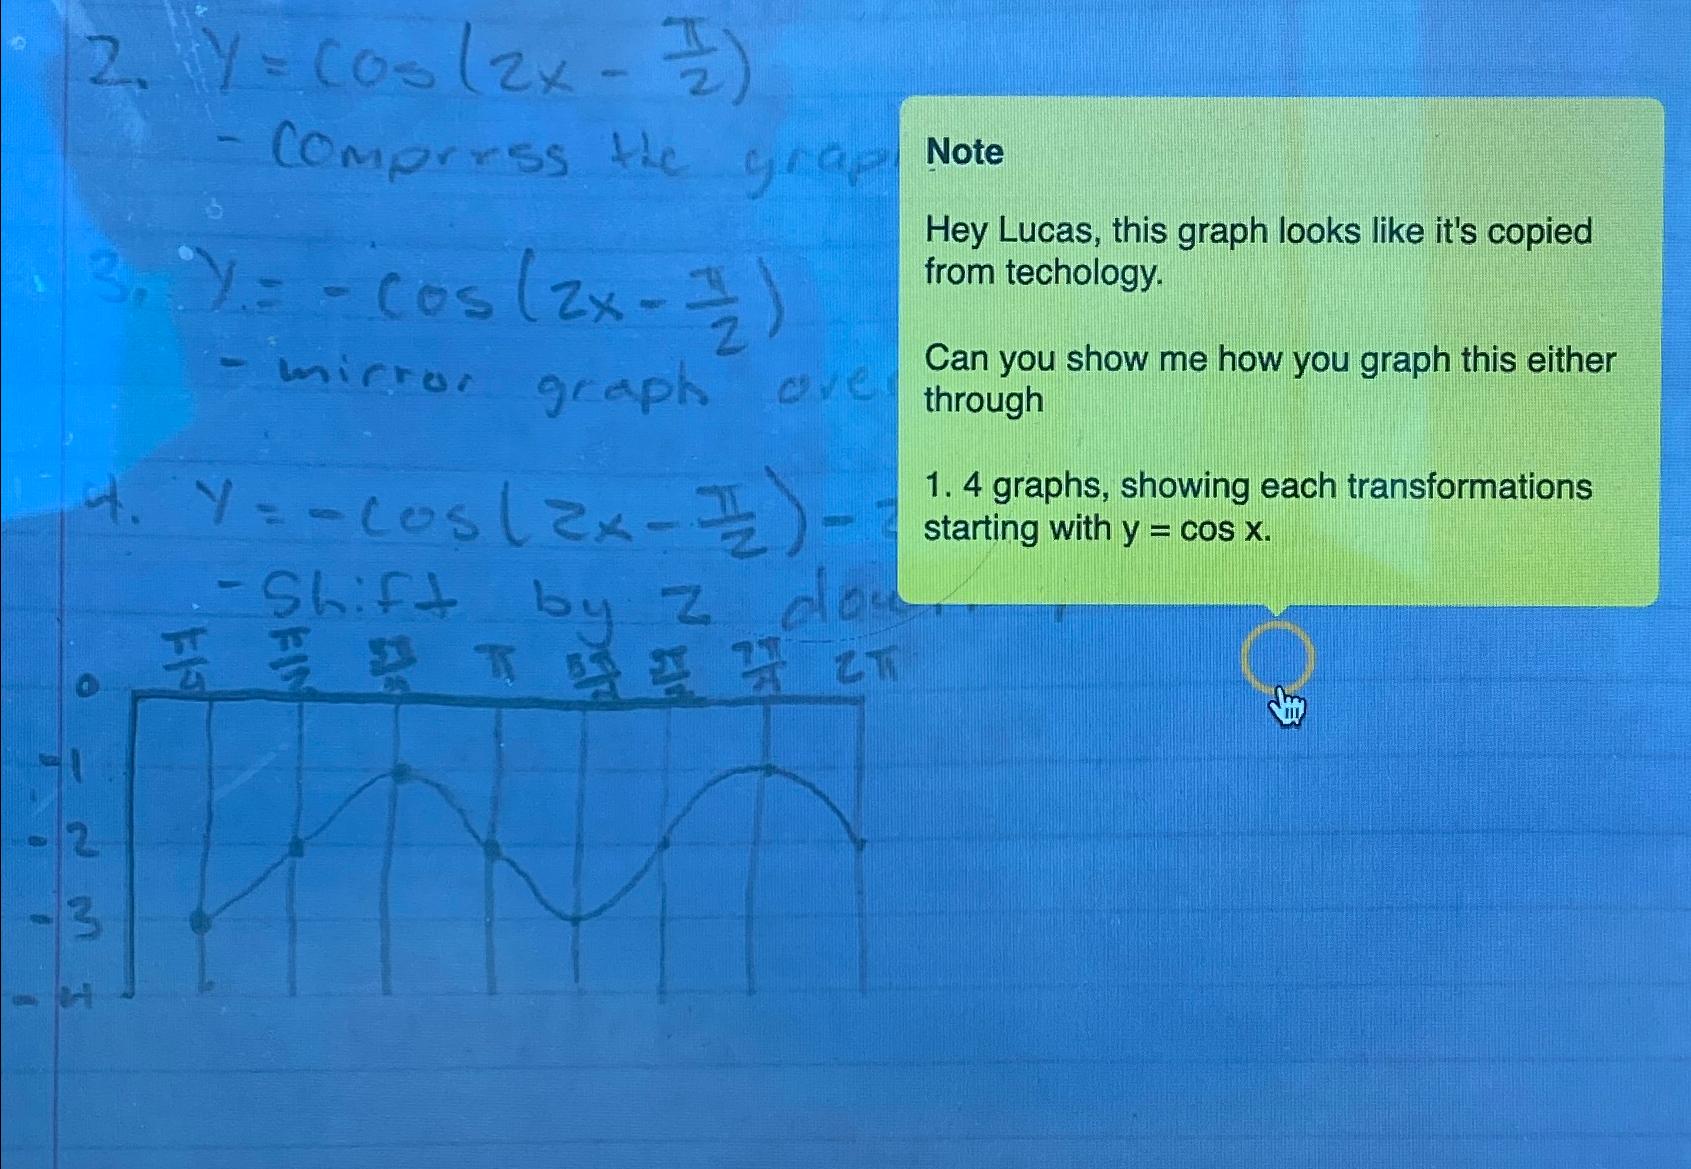 2. Y = cos(2x - π/2)
- Comprrss the grap
3. Y = - cos(2x - π/2)
- mirror graph ove
4. Y = - cos(2x - π/2) -
- Shift by 2 dow
π/4 π/2 3π/4 π 5π/4 3π/2 7π/4 2π
0
-1
-2
-3
-4
Note
Hey Lucas, this graph looks like it's copied
from techology.
Can you show me how you graph this either
through
1. 4 graphs, showing each transformations
starting with y = cos x.